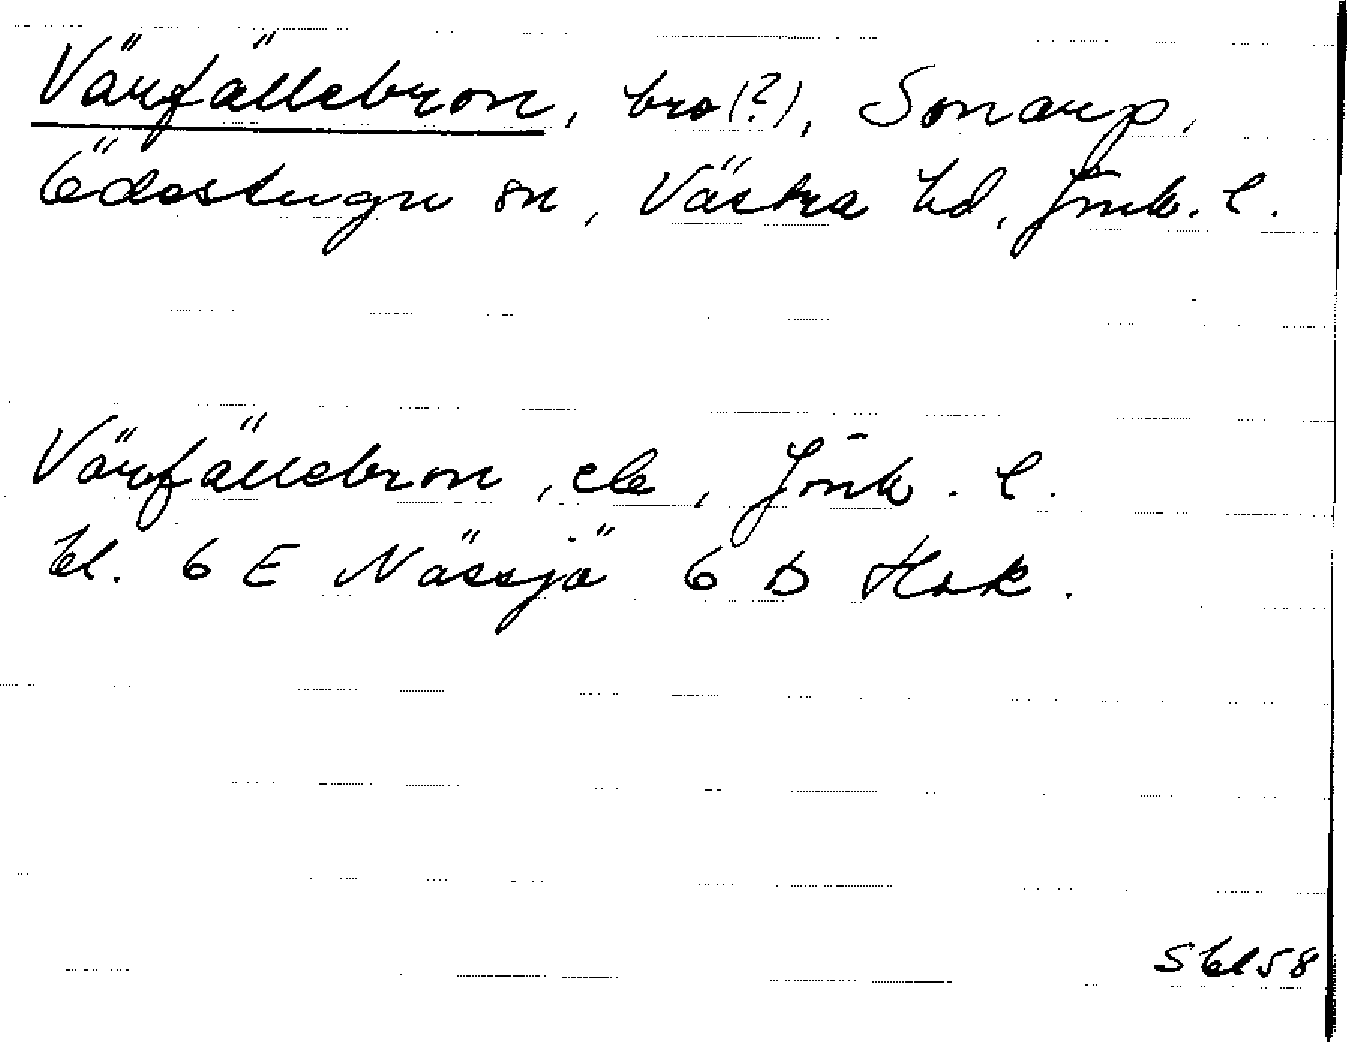 Värfällebron, bro(?), Sonarp,
Ödestugu sn, Västra hd, Jönk. l.
Värfällebron, ek, Jönk. l.
bl. 6 E Nässjö 6 D Hok.
S bl 58